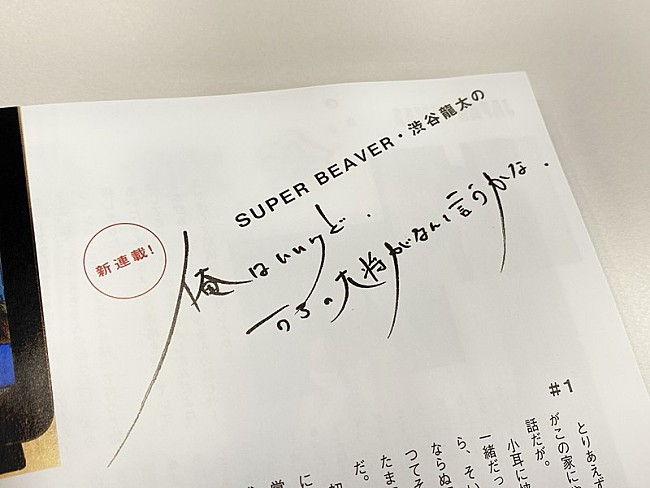 SUPER BEAVER・渋谷龍太の
新連載!
俺はいいけど.
の大将がなんて言うかな.
#1
とりあえず
がこの家に
話だが。
小耳に
一緒だっ
ら、そい
ならぬ
つてそ
たま
だ。
に